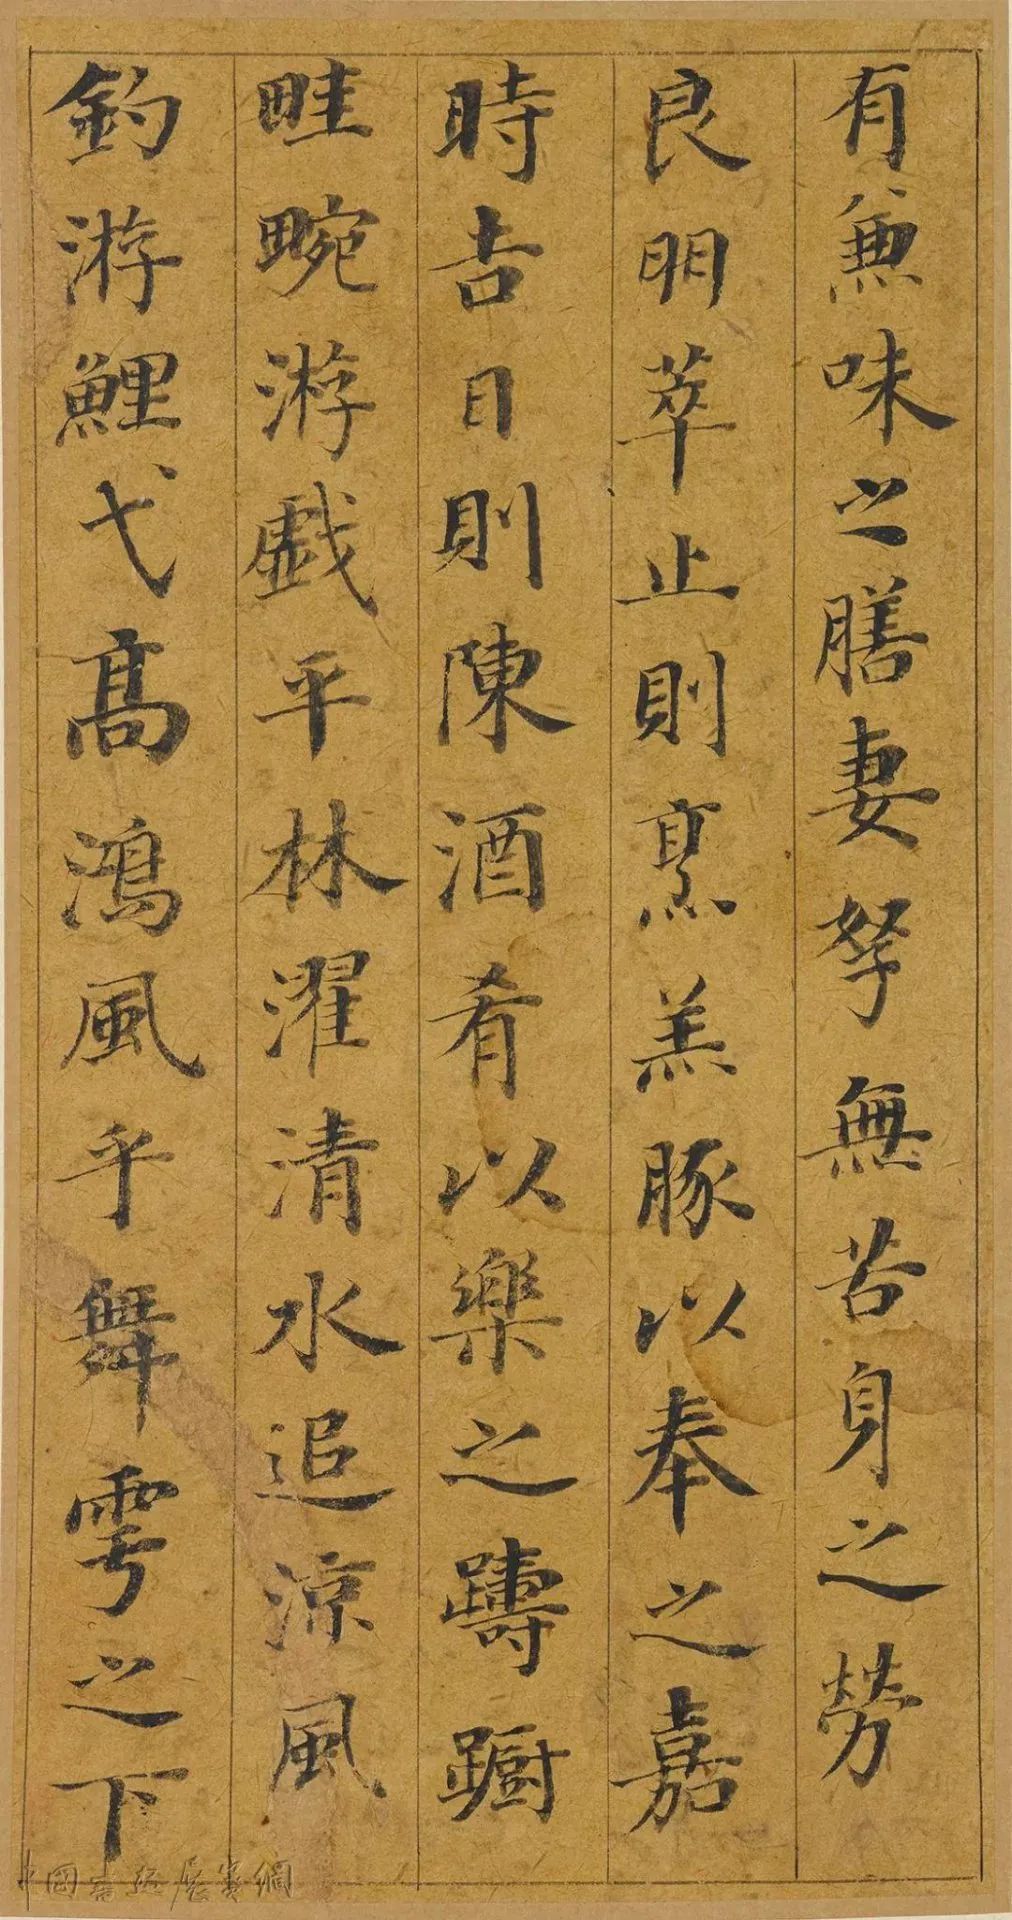 有兼味之膳妻孥無苦身之勞
良朋萃止則烹羔豚以奉之嘉
時吉日則陳酒肴以樂之躊躕
畦畹游戯平林濯清水追涼風
釣游鯉弋高鴻風乎舞雩之下